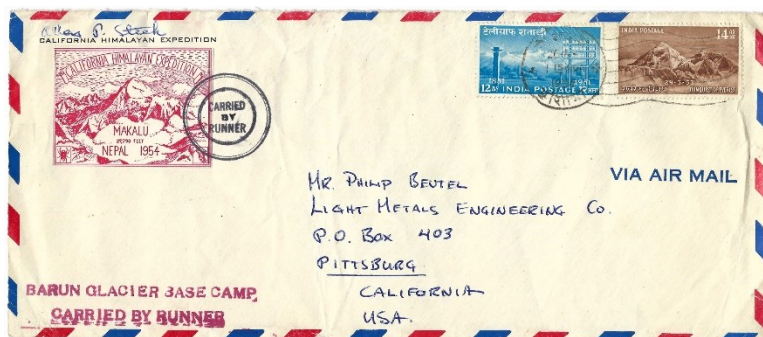 Allen P. Steck
CALIFORNIA HIMALAYAN EXPEDITION
CALIFORNIA HIMALAYAN EXPEDITION
MAKALU
NEPAL 1954
CARRIED
BY
RUNNER
टेलीग्राफ शताब्दी
1851 1951
12 AS INDIA POSTAGE
INDIA POSTAGE 14 AS
29-5-53
VIA AIR MAIL
MR. PHILIP BEUTEL
LIGHT METALS ENGINEERING CO.
P.O. BOX 403
PITTSBURG
CALIFORNIA
USA.
BARUN GLACIER BASE CAMP,
CARRIED BY RUNNER